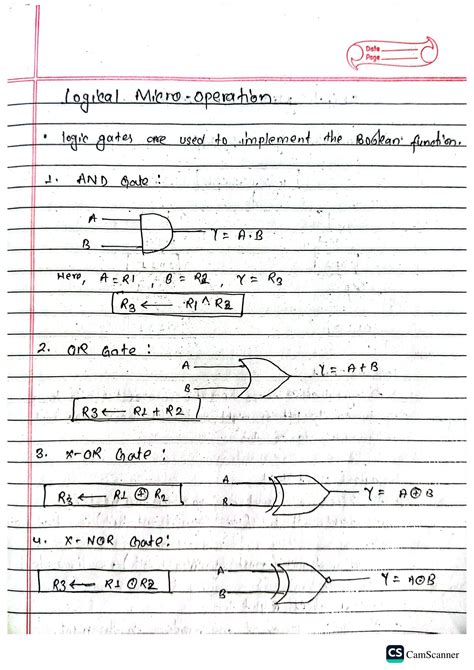 Date
Page
Logical Micro-operation
• logic gates are used to implement the Boolean function.
1. AND Gate :
A
B
Y = A.B
Here, A = R1 , B = R2 , Y = R3
R3 ← R1 ^ R2
2. OR Gate :
A
B
Y = A+B
R3 ← R1 + R2
3. X-OR Gate :
R3 ← R1 ⊕ R2
A
B
Y = A⊕B
4. X-NOR Gate :
R3 ← R1 ⊙ R2
A
B
Y = A⊙B
CS CamScanner